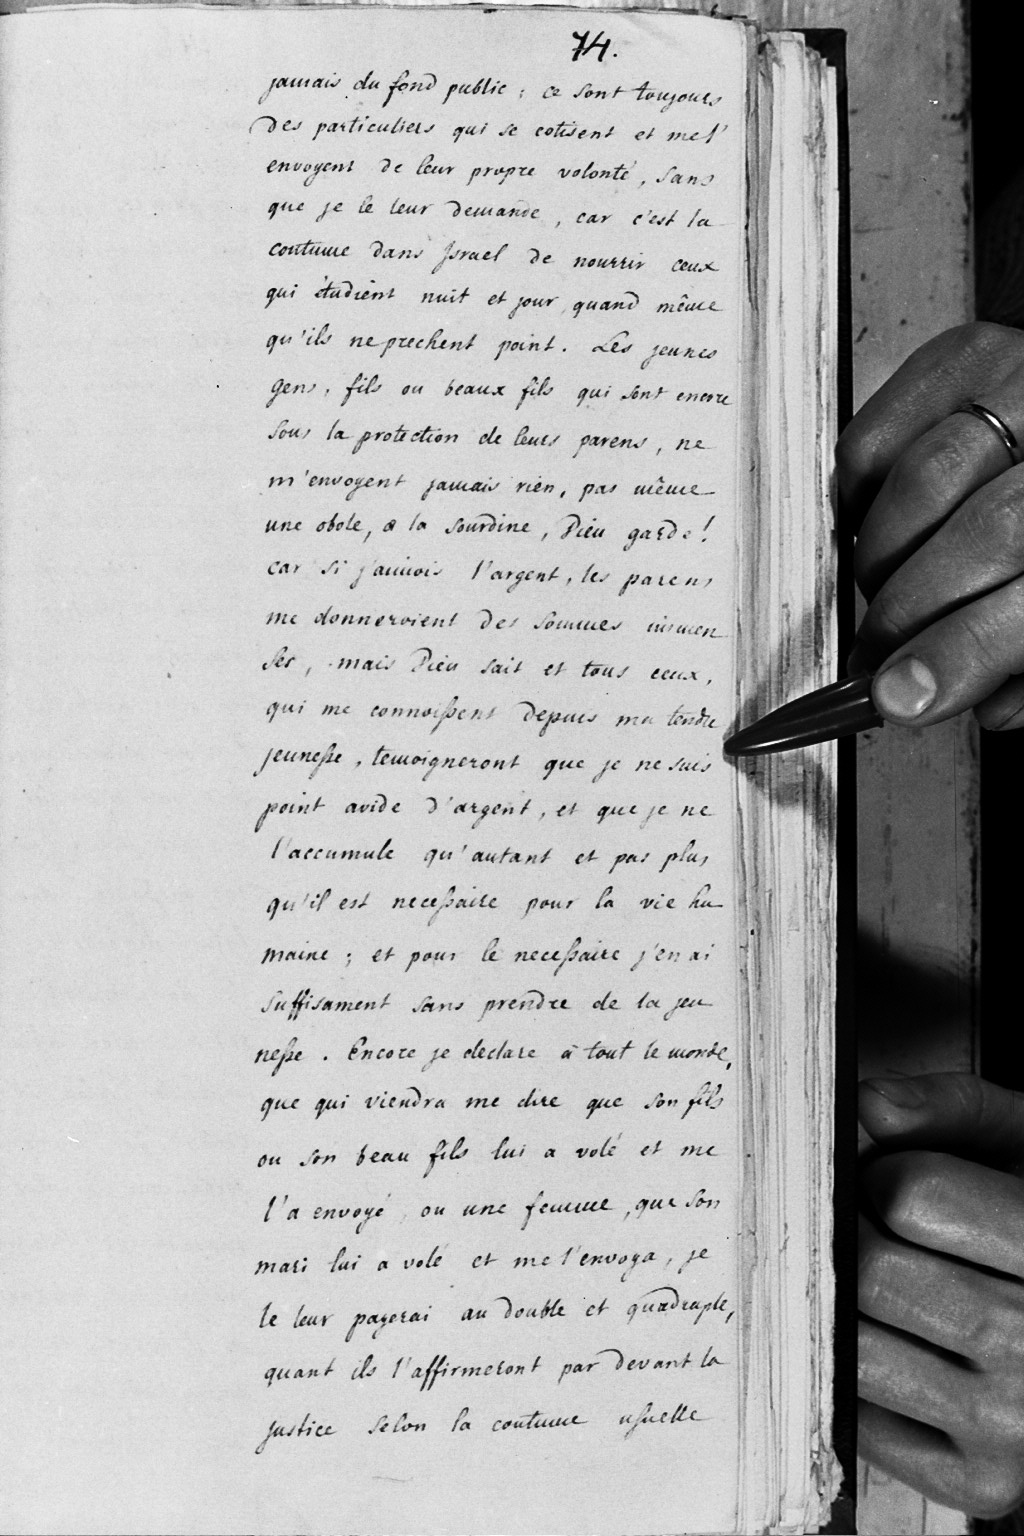 74.
jamais du fond public ; ce sont toujours
des particuliers qui se cotisent et me l'
envoyent de leur propre volonté, sans
que je le leur demande, car c'est la
coutume dans Israel de nourrir ceux
qui étudient nuit et jour, quand même
qu'ils ne prechent point. Les jeunes
gens, fils ou beaux fils qui sont encore
sous la protection de leurs parens, ne
m'envoyent jamais rien, pas même
une obole, à la sourdine, Dieu garde!
car si j'aimois l'argent, les parens
me donneroient des sommes immen
ses, mais Dieu sait et tous ceux,
qui me connoissent depuis ma tendre
jeunesse, temoigneront que je ne suis
point avide d'argent, et que je ne
l'accumule qu'autant et pas plus
qu'il est necessaire pour la vie hu
maine ; et pour le necessaire j'en ai
suffisament sans prendre de la jeu
nesse. Encore je declare à tout le monde,
que qui viendra me dire que son fils
ou son beau fils lui a volé et me
l'a envoyé, ou une femme, que son
mari lui a volé et me l'envoya, je
le leur payerai au double et quadruple,
quant ils l'affirmeront par devant la
justice selon la coutume usuelle